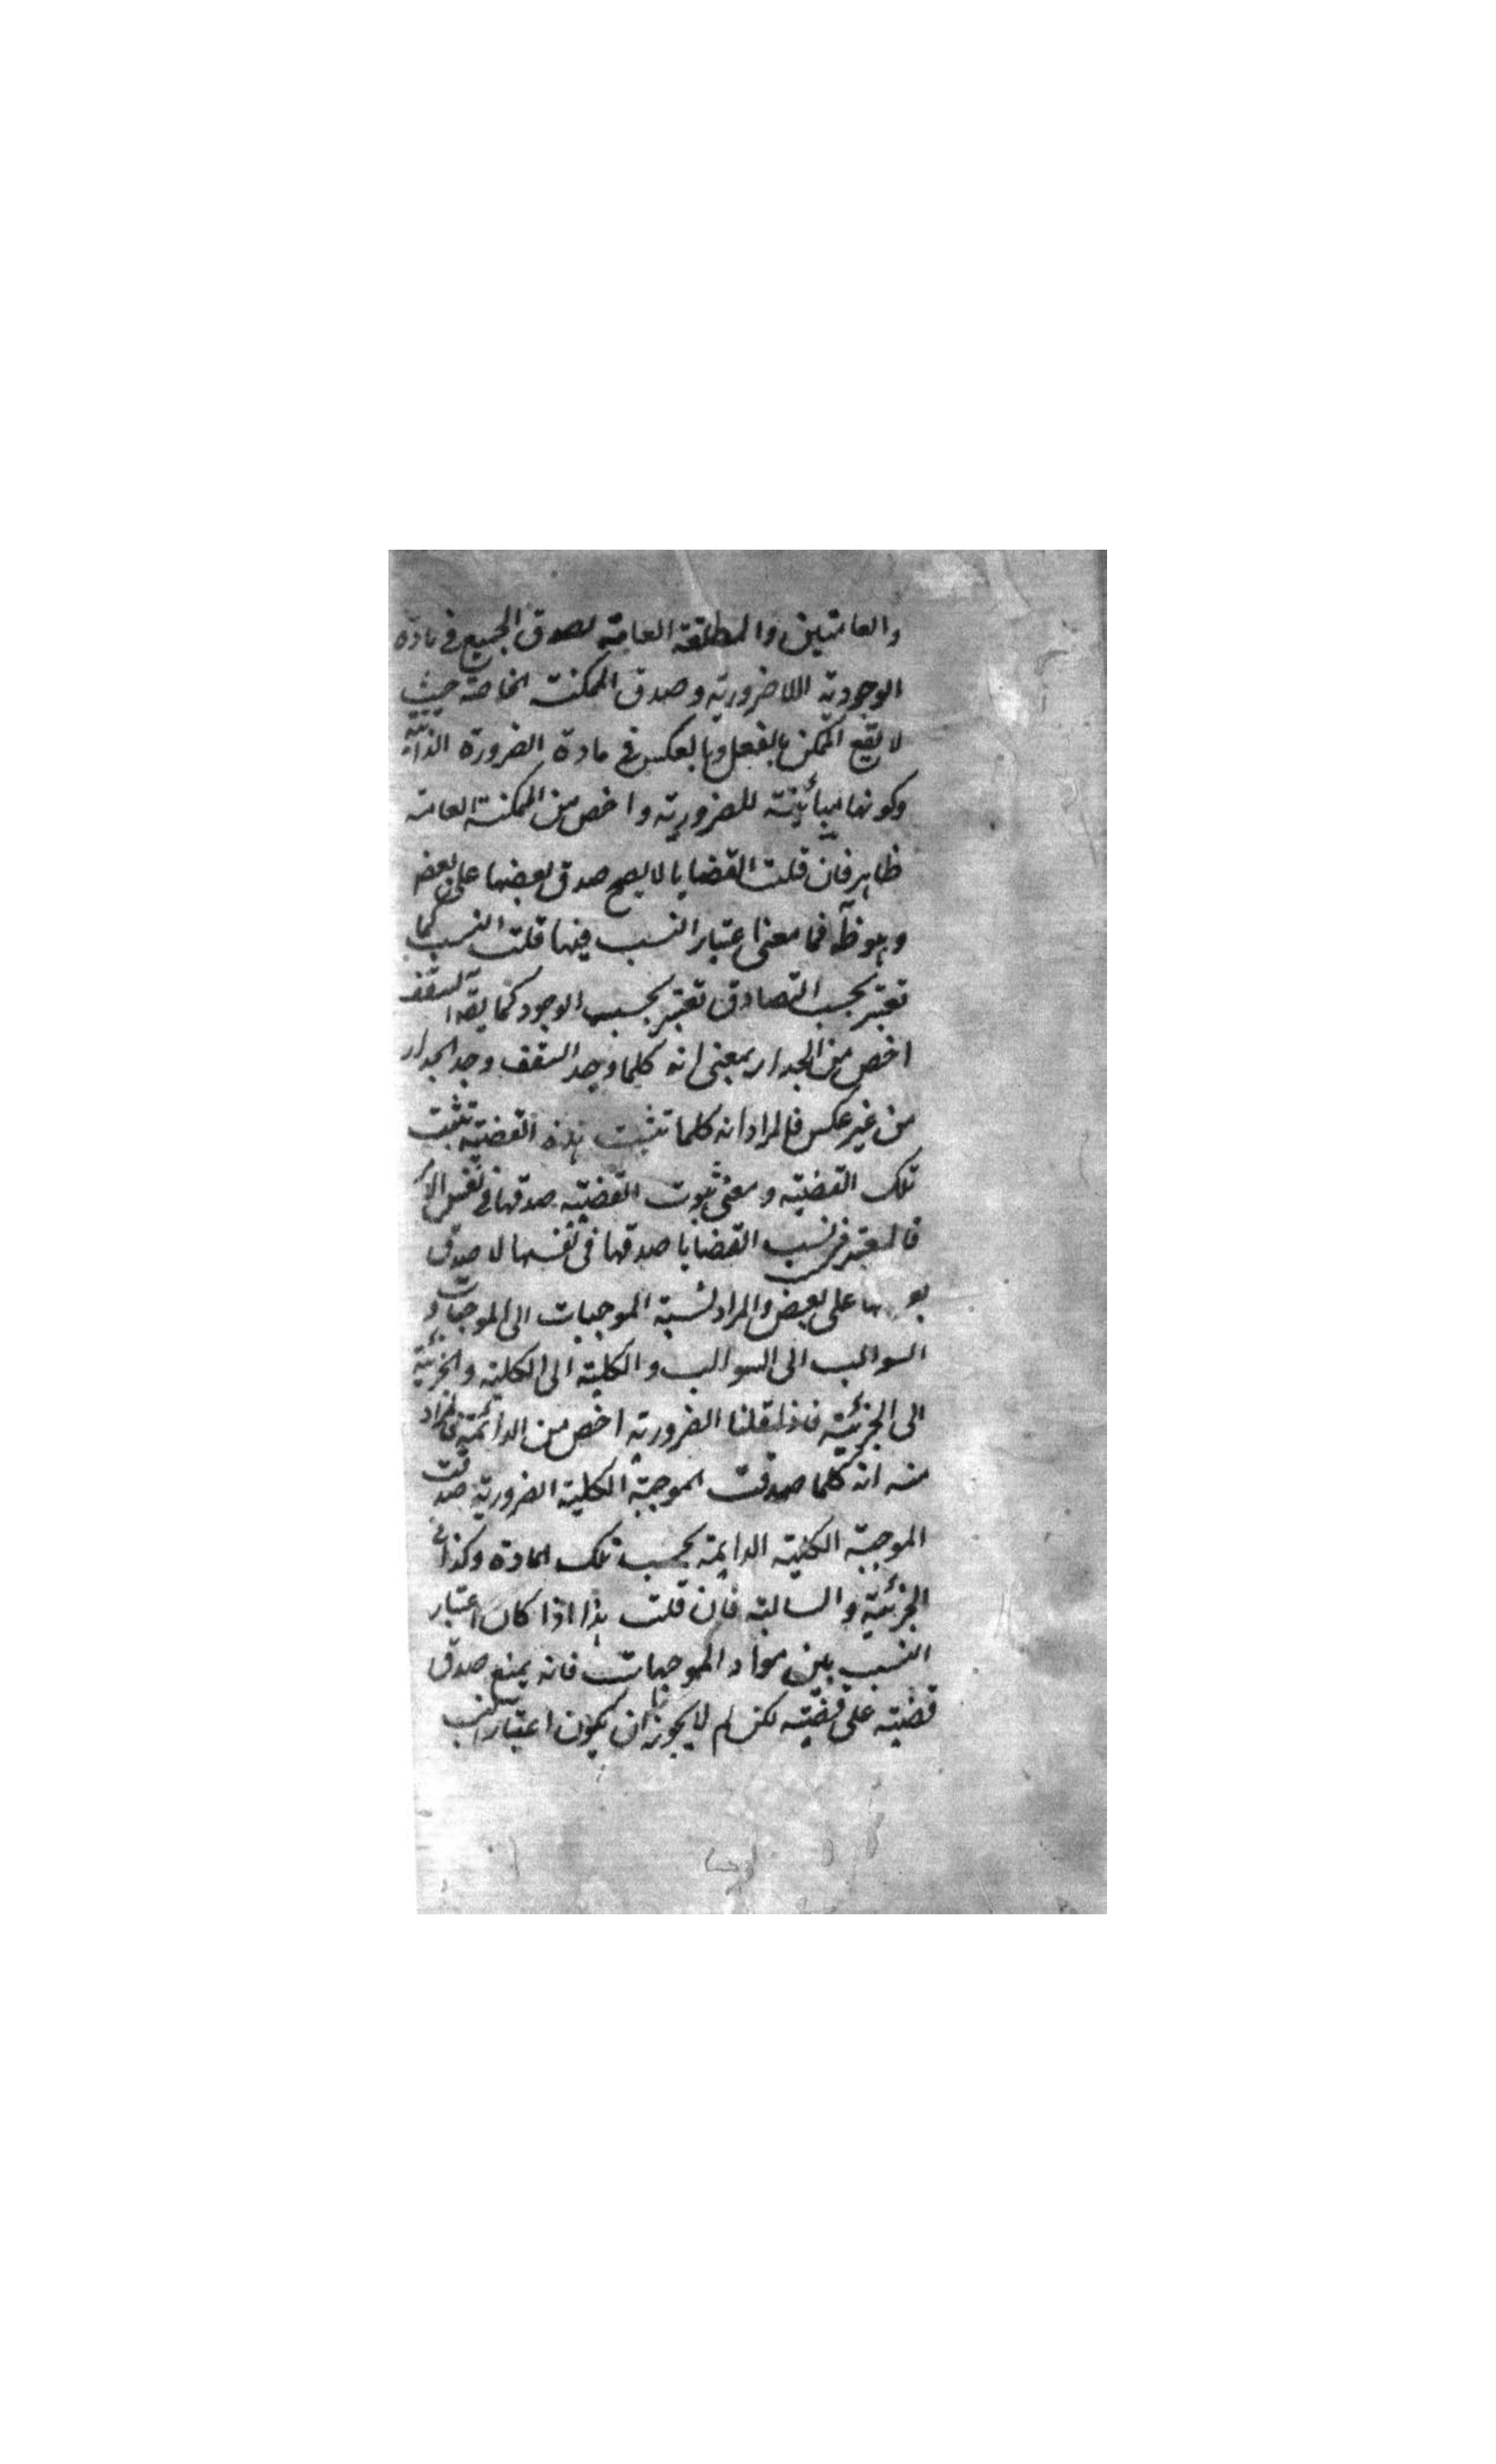 والعامتين والمطلقة العامة لصدق الجميع في مادة
الوجودية اللاضرورية وصدق الممكنة الخاصة حيث
لا يقع الممكن بالفعل وبالعكس في مادة الضرورة الذاتية
وكونها مباينة للضرورية واخص من الممكنة العامة
ظاهر فان قلت القضايا لا يصح صدق بعضها على بعض
وهو ظ فما معنى اعتبار النسب فيها قلت النسب كما
تعتبر بحسب التصادق تعتبر بحسب الوجود كما يقال السقف
اخص من الجدار بمعنى انه كلما وجد السقف وجد الجدار
من غير عكس فالمراد انه كلما تثبت هذه القضية تثبت
تلك القضية ومعنى ثبوت القضية صدقها في نفس الامر
فالمعتبر في نسب القضايا صدقها في نفسها لا صدق
بعضها على بعض والمراد نسبة الموجبات الى الموجبات و
السوالب الى السوالب والكلية الى الكلية والجزئية
الى الجزئية فاذا قلنا الضرورية اخص من الدائمة فالمراد
منه انه كلما صدقت الموجبة الكلية الضرورية صدقت
الموجبة الكلية الدايمة بحسب تلك المادة وكذا في
الجزئية والسالبة فان قلت هذا اذا كان اعتبار
النسب بين مواد الموجهات فانه يمنع صدق
قضية على قضية لكن لم لا يجوز ان يكون اعتبار النسب